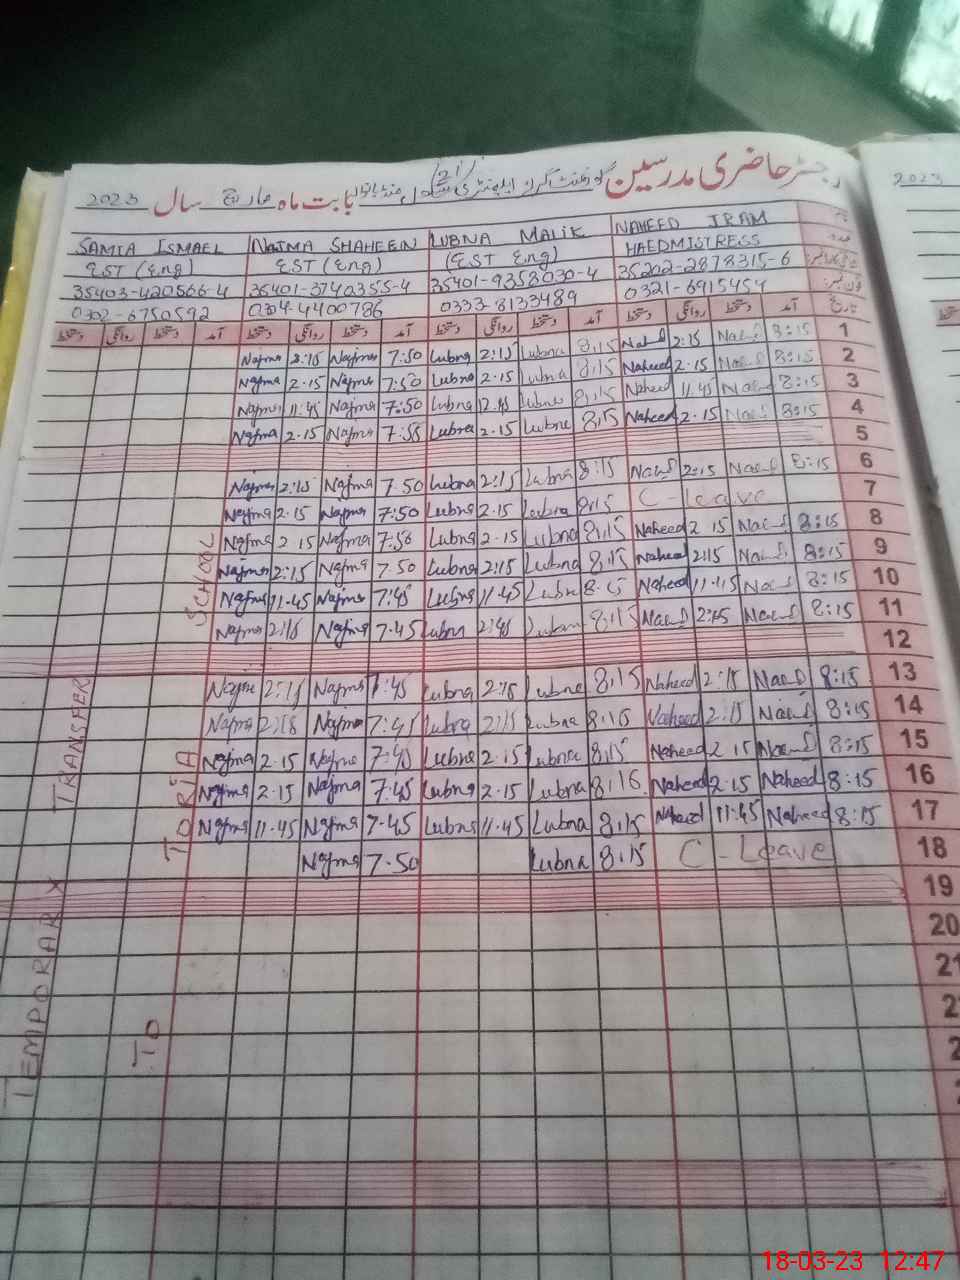 رجسٹر حاضری مدرسین گورنمنٹ گرلز ایلیمنٹری سکول بابت ماہ مارچ سال 2023
2023
NAHEED IRAM
LUBNA MALIK
NAJMA SHAHEEN
SAMIA ISMAEL
HAEDMISTRESS
(EST Eng)
EST (Eng)
EST (Eng)
35202-2878315-6
35401-9358030-4
35401-3740355-4
35403-420566-4
فون نمبر
0321-6915454
0333-8133489
0304-4400786
0302-6750592
تاریخ آمد دستخط روانگی دستخط آمد دستخط روانگی دستخط آمد دستخط روانگی دستخط آمد دستخط روانگی دستخط
1 8:15 Naeed 2:15 Naheed 8:15 Lubna 2:15 Lubna 7:50 Najma 2:15 Najma
2 8:15 Naeed 2.15 Naheed 8:15 Lubna 2.15 Lubna 7:50 Najma 2.15 Najma
3 8:15 Naeed 11.45 Naheed 8:15 Lubna 12.45 Lubna 7:50 Najma 11.45 Najma
4 8:15 Naeed 2.15 Naheed 8:15 Lubna 2.15 Lubna 7:55 Najma 2.15 Najma
5
6 8:15 Naeed 2:15 Naeed 8:15 Lubna 2:15 Lubna 7.50 Najma 2:15 Najma
7 C-leave 8:15 Lubna 2.15 Lubna 7:50 Najma 2.15 Najma
8 8:15 Naeed 2 15 Naheed 8:15 Lubna 2.15 Lubna 7:50 Najma 2 15 Najma
9 8:15 Naeed 2:15 Naheed 8:15 Lubna 2:15 Lubna 7.50 Najma 2:15 Najma
10 8:15 Naeed 11.45 Naheed 8:15 Lubna 11.45 Lubna 7:45 Najma 11.45 Najma
11 8:15 Naeed 2:15 Naeed 8:15 Lubna 2:15 Lubna 7.45 Najma 2:15 Najma
12
13 8:15 Naeed 2:15 Naheed 8:15 Lubna 2:15 Lubna 7:45 Najma 2:15 Najma
14 8:15 Naeed 2:15 Naheed 8:15 Lubna 2:15 Lubna 7:45 Najma 2:15 Najma
15 8:15 Naeed 2 15 Naheed 8:15 Lubna 2.15 Lubna 7:45 Najma 2.15 Najma
16 8:15 Naheed 2.15 Naheed 8:15 Lubna 2.15 Lubna 7:45 Najma 2.15 Najma
17 8:15 Naheed 11:45 Naheed 8:15 Lubna 11.45 Lubna 7.45 Najma 11.45 Najma
18 C-Leave 8:15 Lubna 7.50 Najma
19
20
21
TEMPORARY TRANSFER
TO TORIA SCHOOL
18-03-23 12:47